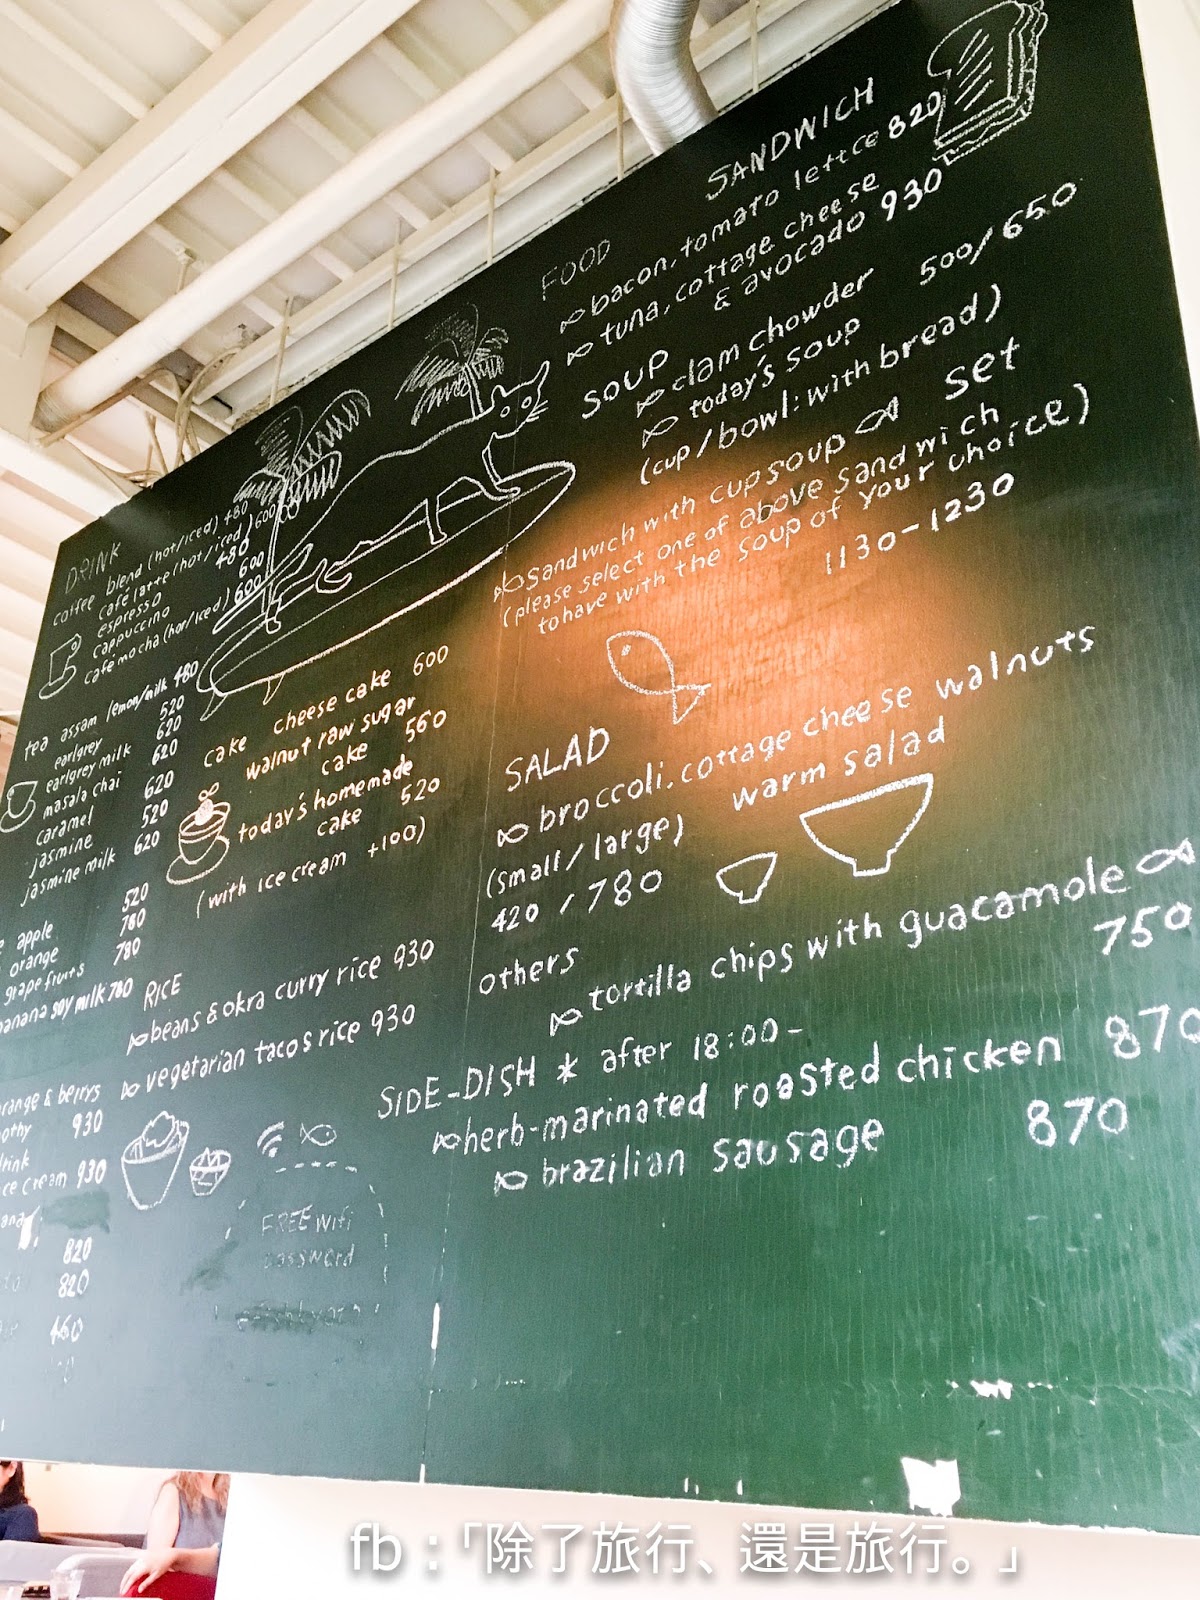 DRINK
coffee blend (hot/iced) 480
café latte (hot/iced) 600
espresso 480
cappuccino 600
café mocha (hot/iced) 600
tea assam lemon/milk 480
earlgrey 520
earlgrey milk 620
masala chai 620
caramel 620
jasmine 520
jasmine milk 620
apple 520
orange 780
grapefruits 780
banana soy milk 780
orange & berrys
930
drink
ice cream 930
820
820
460
cake cheese cake 600
walnut raw sugar
cake 560
today's homemade
cake 520
(with ice cream +100)
RICE
beans & okra curry rice 930
vegetarian tacos rice 930
FREE wifi
password
FOOD
SANDWICH
bacon, tomato lettce 820
tuna, cottage cheese
& avocado 930
SOUP
clam chowder 500/650
today's soup
(cup/bowl: with bread)
sandwich with cup soup set
(please select one of above sandwich
to have with the soup of your choice)
1130-1230
SALAD
broccoli, cottage cheese walnuts
warm salad
(small/large)
420/780
others
tortilla chips with guacamole
750
SIDE-DISH * after 18:00-
herb-marinated roasted chicken 870
brazilian sausage 870
fb：「除了旅行、還是旅行。」